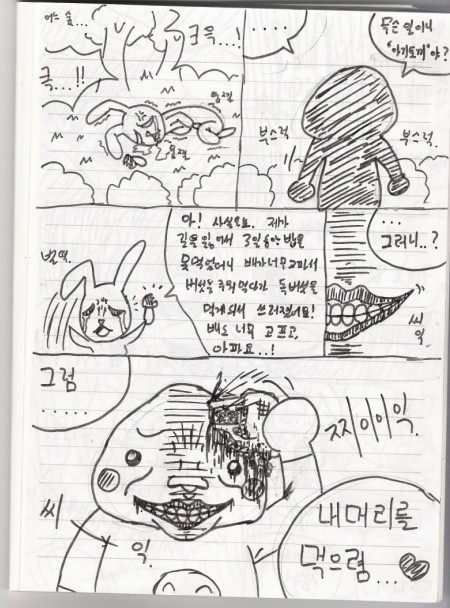 어느 숲...
크윽...!
큭...!!
움찔
움찔
....
무슨 일이니
"아기토끼"야?
부스럭
부스럭.
벌떡.
아! 사실은요. 제가
길을 잃어서 3일동안 밥을
못먹었더니 배가너무고파서
버섯을 주워먹다가 독버섯을
먹게되서 쓰러졌네요!
배도 너무 고프고,
아파요..!
...
그러니..?
씨
익.
그럼
......
찌이이익.
씨
익.
내머리를
먹으렴...